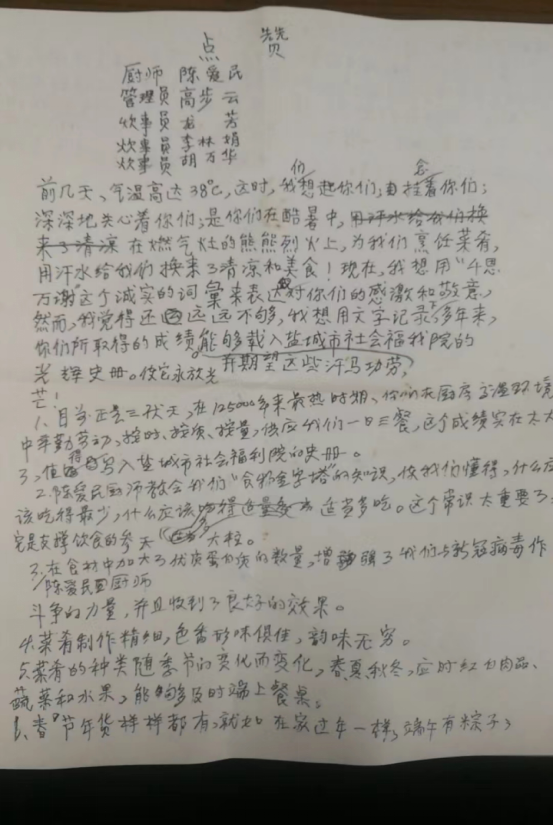 点 赞
厨师 陈爱民
管理员 高步云
炊事员 龙 芳
炊事员 李林娟
炊事员 胡万华
前几天，气温高达38℃，这时，我们想起你们；念挂着你们；
深深地关心着你们；是你们在酷暑中，用汗水给我们换
来了清凉 在燃气灶的熊熊烈火上，为我们烹饪菜肴，
用汗水给我们换来了清凉和美食！现在，我想用“千恩
万谢”这个诚实的词汇来表达对你们的感激和敬意，
然而，我觉得还远远不够，我想用文字记录多年来，
你们所取得的成绩能够载入盐城市社会福利院的
光辉史册。使它永放光
并期望这些汗马功劳，
芒！
1、目前正是三伏天，在125000年来最热时期、你们在厨房高温环境
中辛勤劳动，按时、按质、按量，供应我们一日三餐，这个成绩实在太大
了，值得写入盐城市社会福利院的史册。
2.陈爱民厨师教会我们“食物金字塔”的知识，使我们懂得，什么应
该吃得最少，什么应该 适当多吃。这个常识太重要了，
它是支撑饮食的参天 大柱。
3、在食材中加大了优质蛋白质的数量，增强了我们与新冠病毒作
陈爱民厨师
斗争的力量，并且收到了良好的效果。
4.菜肴制作精细，色香形味俱佳，韵味无穷。
5.菜肴的种类随季节的变化而变化，春夏秋冬，应时 肉品、
蔬菜和水果，能够及时端上餐桌；
春节年货样样都有，就如在家过年一样，端午有粽子，